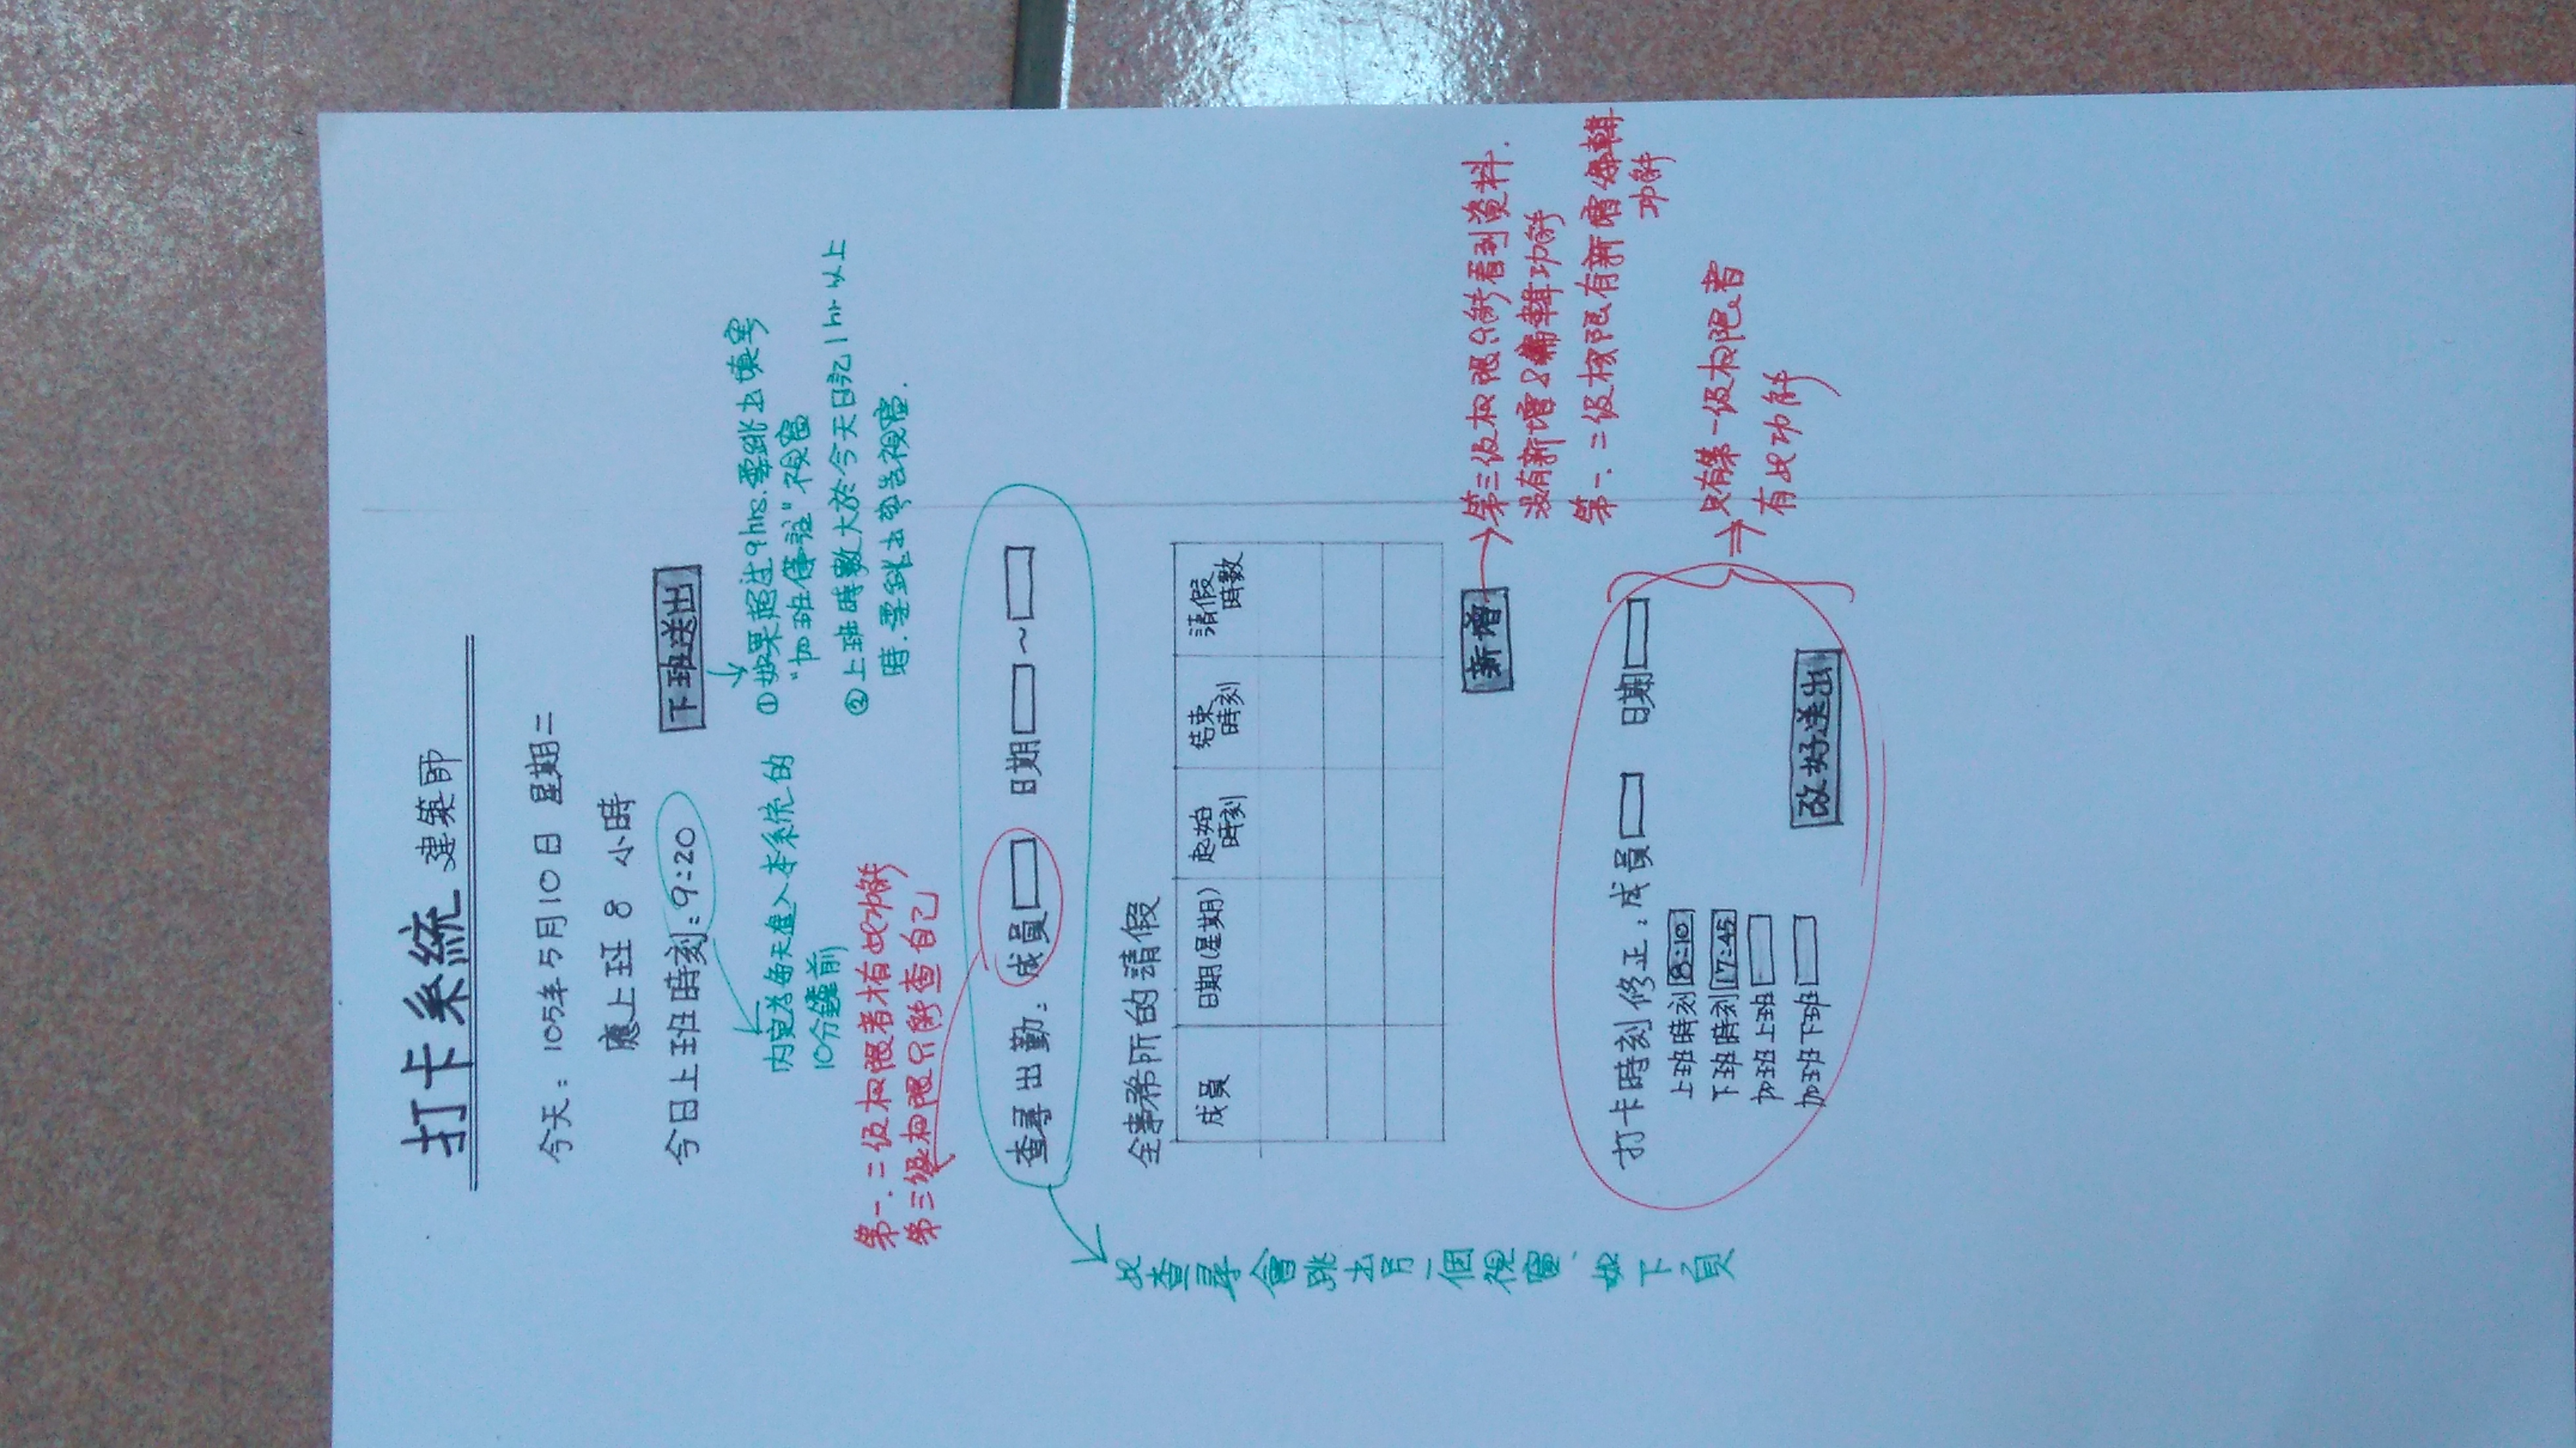 打卡系統 建築師
今天：105年5月10日 星期二
應上班 8 小時
今日上班時刻：9:20
下班送出
內定為每天進入本系統的
10分鐘前
①如果超過9hrs.要跳出填寫
"加班備註"視窗
②上班時數大於今天日記1hr以上
時.要跳出警告視窗.
第一.二級权限者才有此功能
第三級权限只能查自己
查尋出勤：成員 日期 ~
此查尋會跳出另一個視窗、如下頁
全事務所的請假
成員 日期(星期) 起始時刻 結束時刻 請假時數
新增
第三級权限只能看到資料.
沒有新增&編輯功能
第一.二級权限有新增編輯
功能
打卡時刻修正：成員 日期
上班時刻 8:10
下班時刻 17:45
加班上班
加班下班
改好送出
只有第一級权限者
有此功能